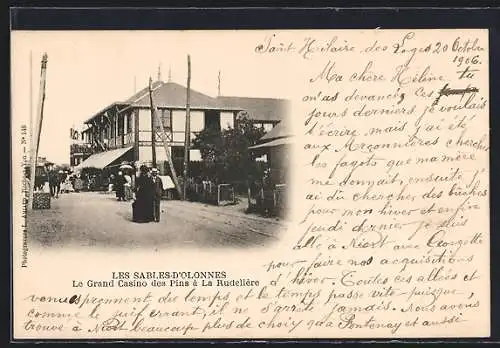 Saint Hilaire des Loges 20 Octobre
1906.
Ma chère Hélène tu
m'as devancée, ces
jours derniers je voulais
t'écrire, mais j'ai été
aux chercher
les fagots que ma mère
me donnait, ensuite j'
ai du chercher des bûches
pour mon hiver et enfin
jeudi dernier je suis
allée à Niort avec Georgette
pour faire nos acquisitions
d'hiver. Toutes ces allées et
venues prennent du temps et le temps passe vite puisque,
comme le juif errant, il ne s'arrête jamais. Nous avons
trouvé à Niort beaucoup plus de choix qu'à Fontenay et aussi
LES SABLES-D'OLONNES
Le Grand Casino des Pins à La Rudelière